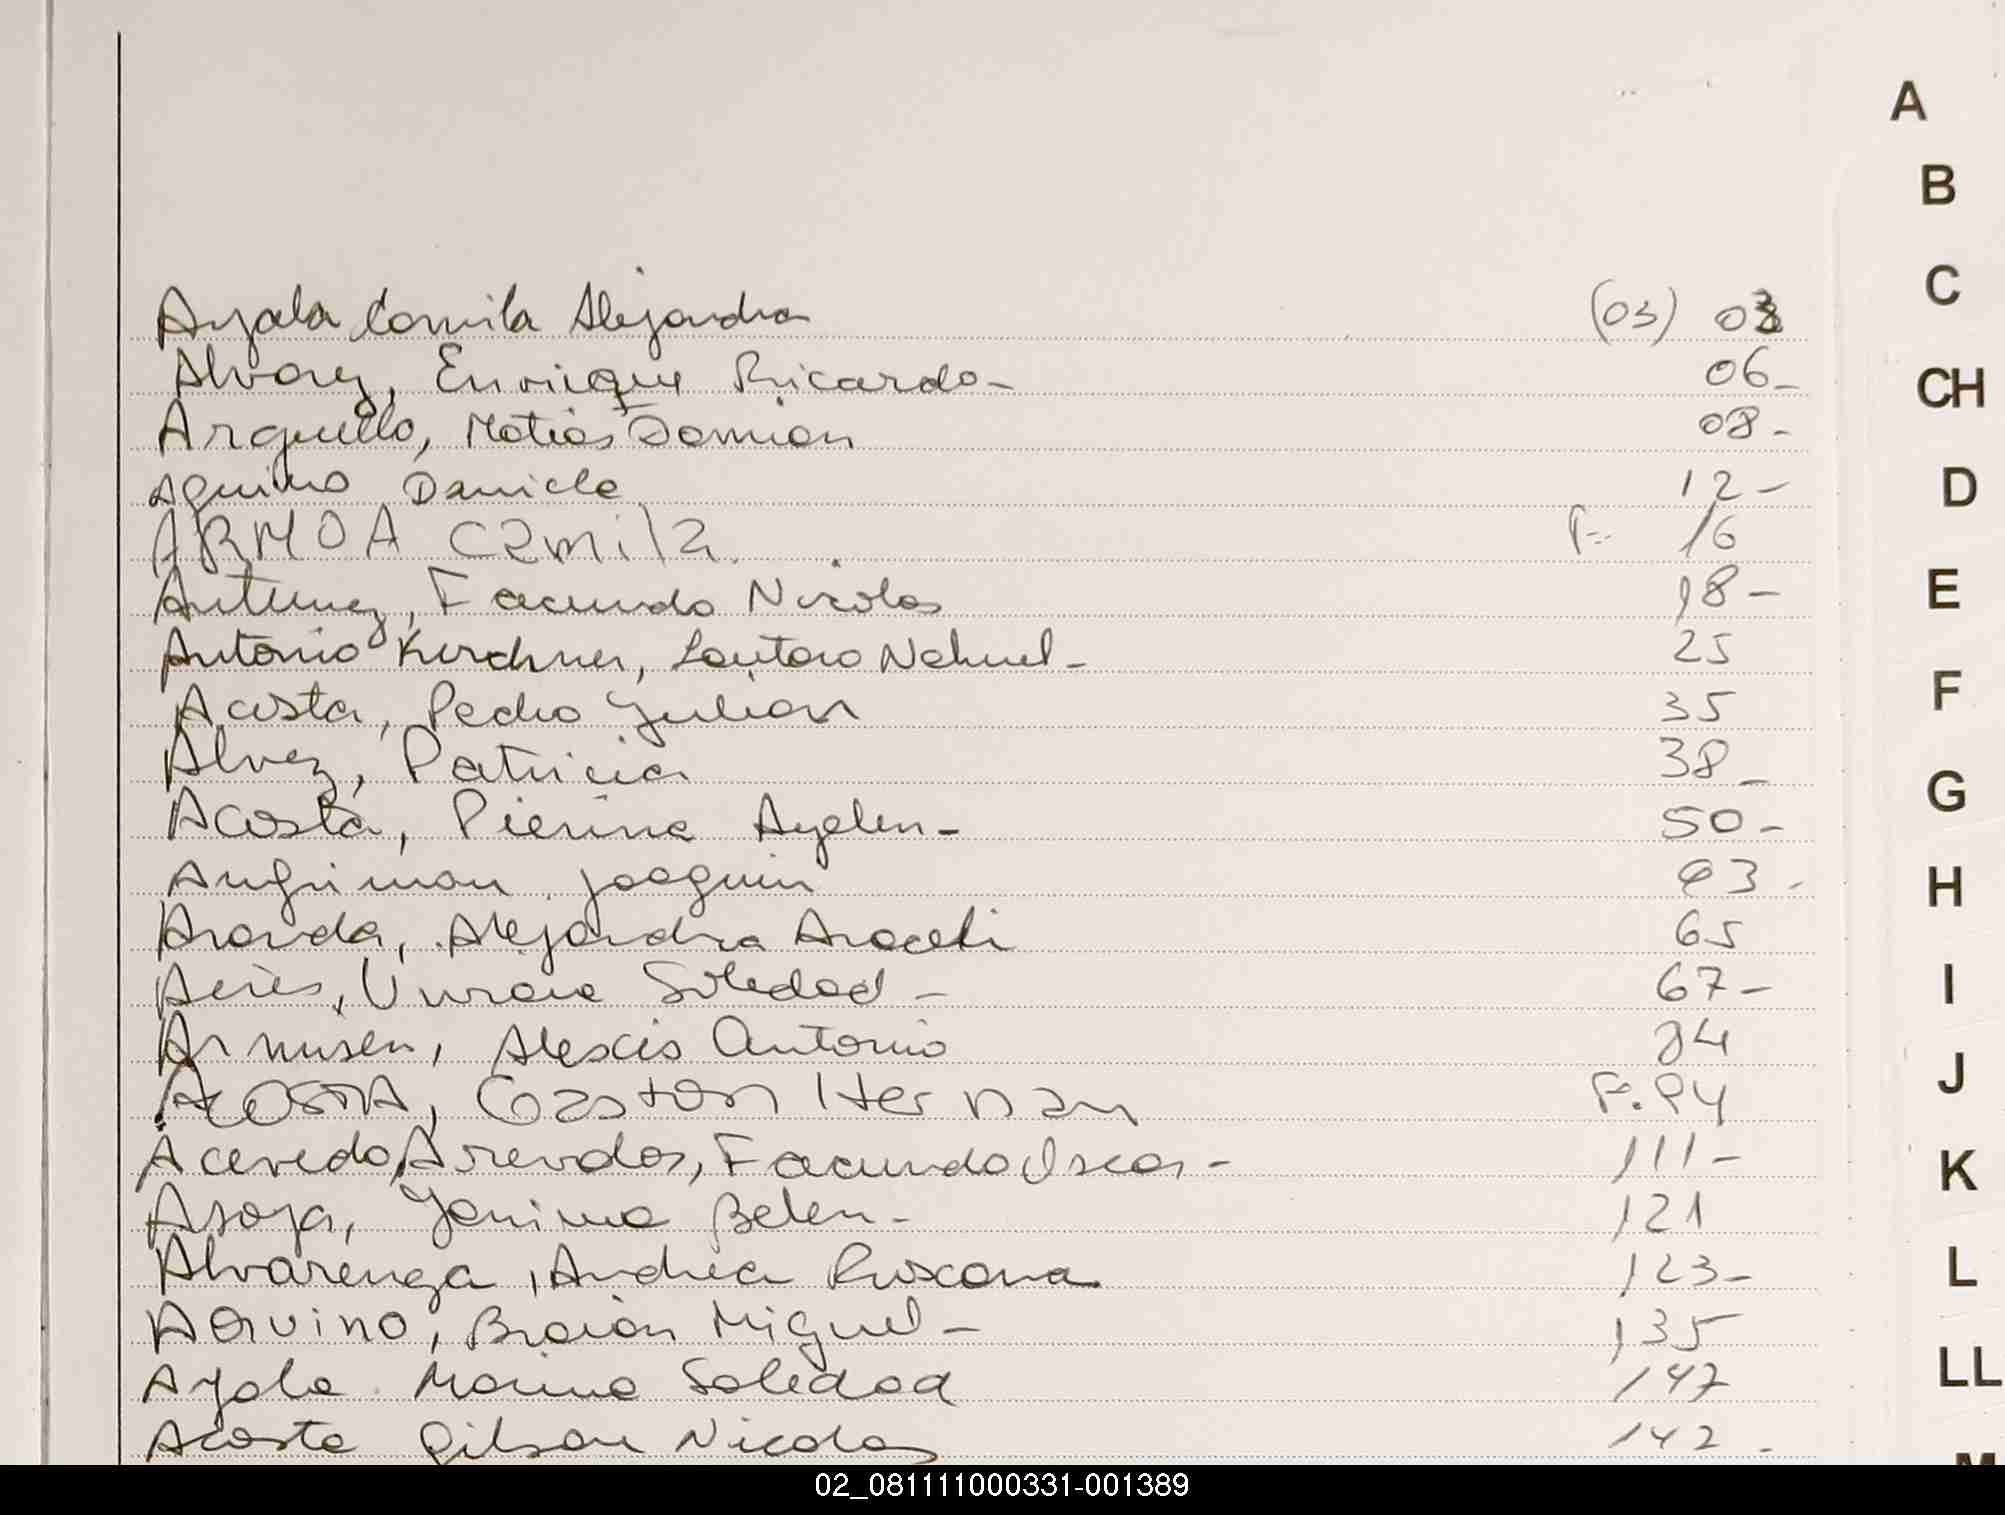 A
B
C
Ayala Camila Alejandra (03) 03
Alvarez, Enrique Ricardo- 06-
CH
Arguello, Matias Damian 08-
Aquino Daniela 12-
D
ARMOA Camila. F: 16
Antunez, Facundo Nicolas 18-
E
Antonio Kirchner, Lautaro Nahuel- 25
Acosta, Pedro Julian 35
F
Alvez, Patricia 38-
Acosta, Pierina Ayelen- 50-
G
Angriman Joaquin 63-
H
Aranda, Alejandra Araceli 65
Soledad - 67-
I
Armisen, Alexis Antonio 84
J
ACOSTA, Gaston Hernan F. 94
Acevedo Arevalos, Facundo Oscar- 111-
K
Asoya, Yanina Belen- 121
L
Alvarenga, Andrea Roxana 123-
AQUINO, Braian Miguel- 135
LL
Ayala Marina Soledad 147
Acosta Gilson Nicolas 142-
02_081111000331-001389